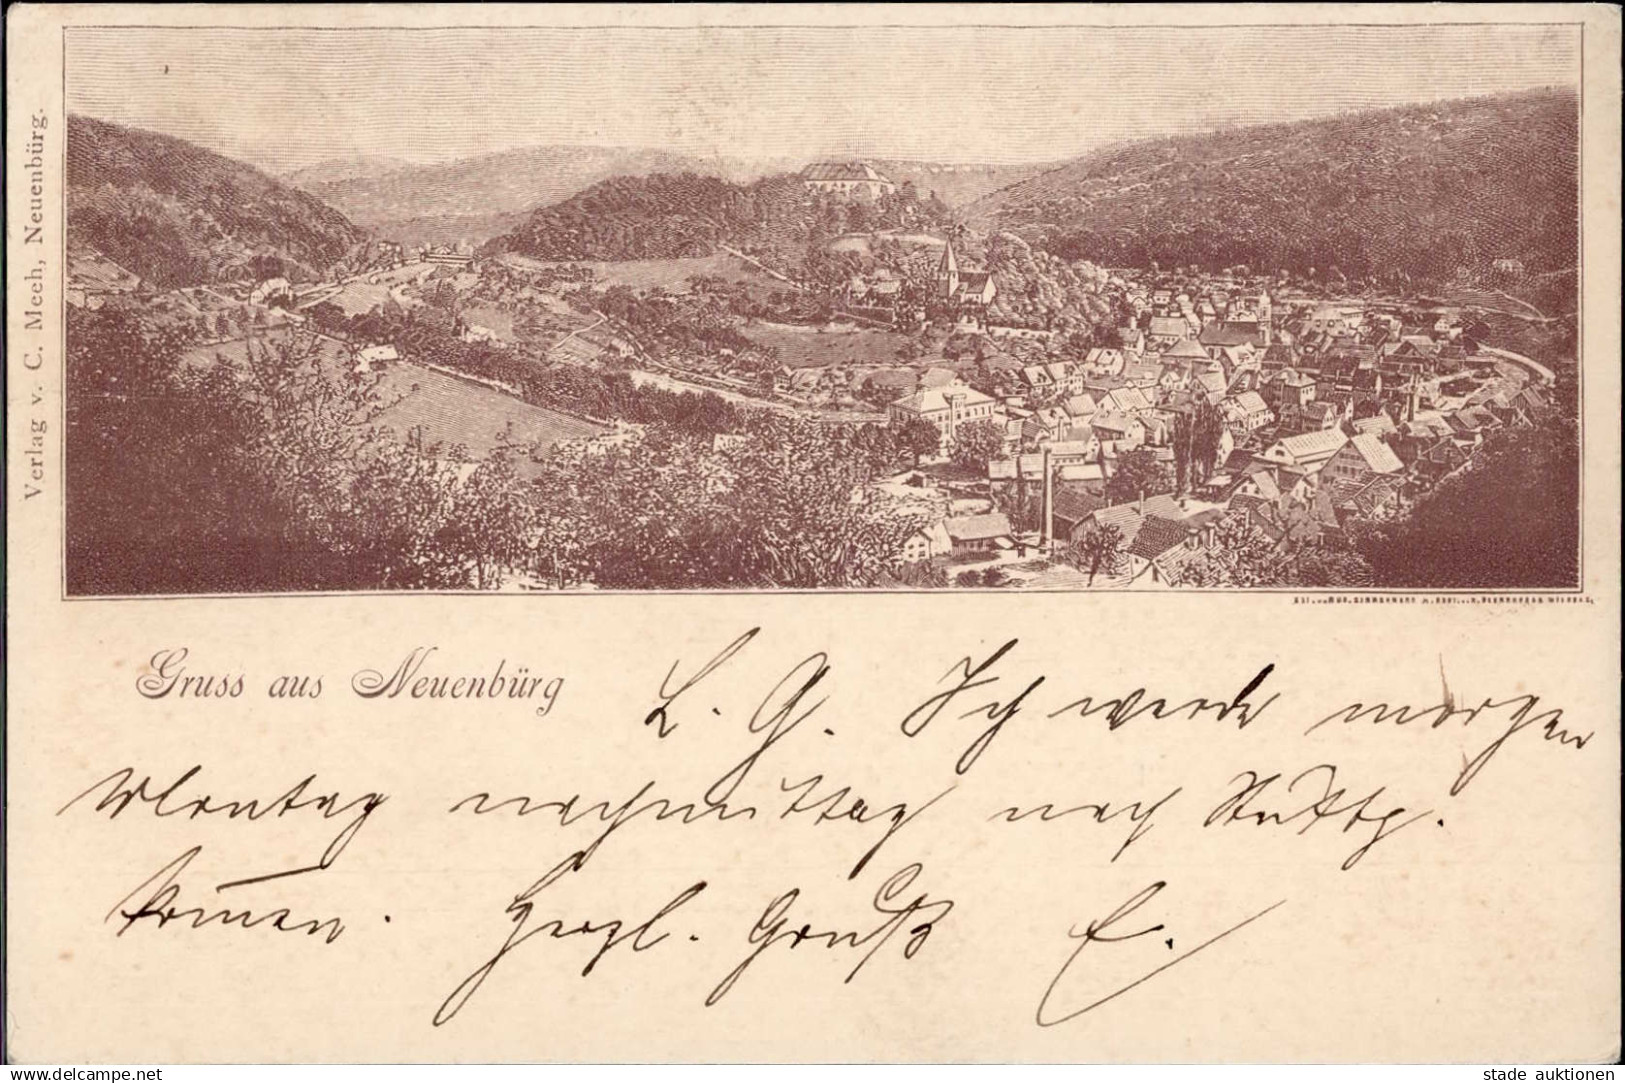 Verlag v. C. Meeh, Neuenbürg.
Gruss aus Neuenbürg
L. G. Ich werde morgen
Montag nachmittag nach Stuttg.
kom̅en. Herzl. Gruß E.
www.delcampe.net
stade auktionen